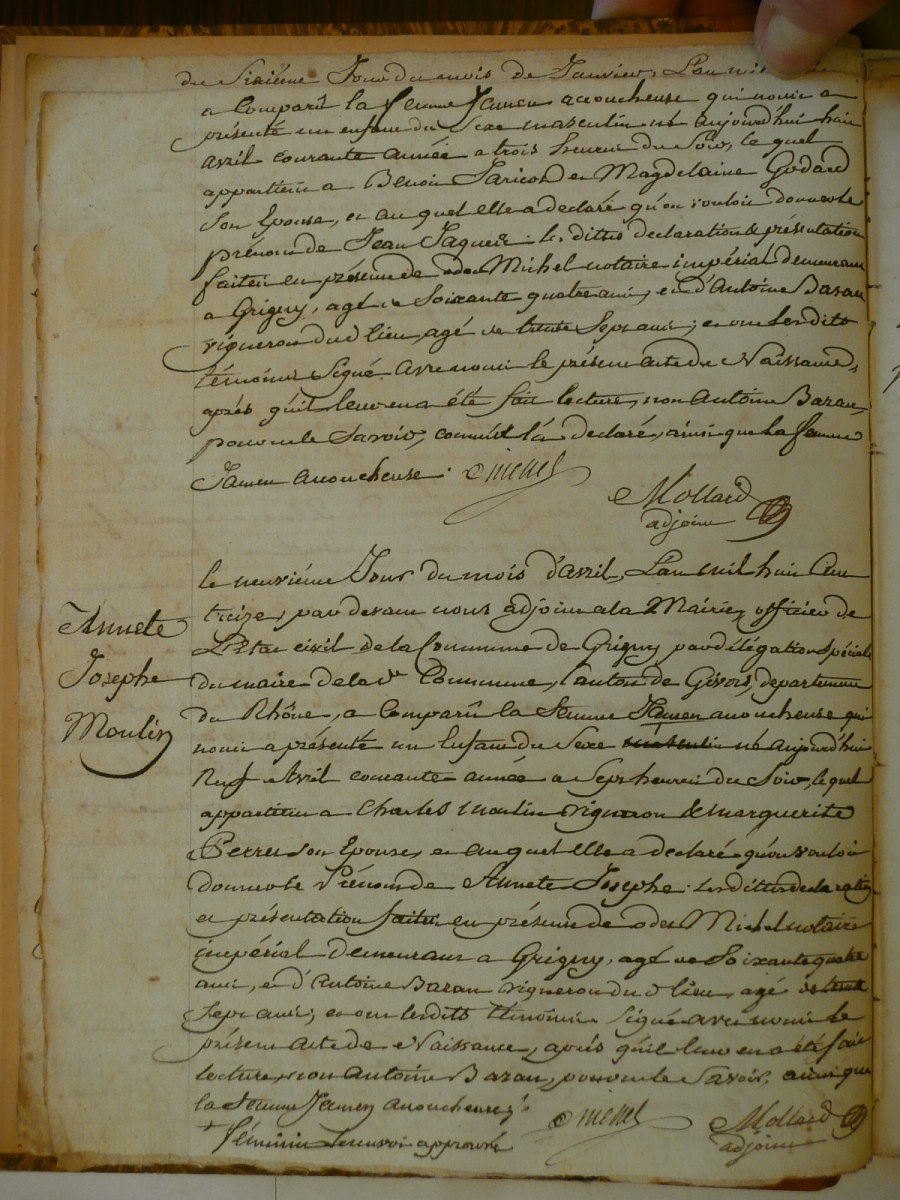 du Sixiéme Jour du mois de Janvier, L'an mil
a Comparû la femme Jamen accoucheuse qui nous a
présenté un enfant du Sexe masculin né aujourd'hui huit
avril courante année a trois heures du Soir, le quel
appartient a Benoit Jaricot et Magdelaine Godard
Son Epouse, et au quel elle a declaré qu'on vouloit donner le
prénom de Jean Jaques: les dittes declaration & présentation
faites en présence de des Michel notaire impérial demeurant
a Grigny, agé de Soixante quatre ans, et d'Antoine Bazan
vigneron du d. lieu, agé de trente Sept ans; et ont lesdits
témoins Signé avec nous le présent acte de Naissance,
après qu'il leur en a été fait lecture, non Antoine Bazan,
pour ne le Savoir, comme il l'a declaré, ainsi que la femme
Jamen accoucheuse.
Mollard
adjoint
Annete
Josephe
Moulin
le neuviéme Jour du mois d'avril, L'an mil huit Cent
treize, par devant nous adjoint a la Mairie, officier de
L'Etat civil de la Commune de Grigny par délégation spéciale
du maire de la d. Commune, Canton de Givors, departement
du Rhône, a Comparû la femme Jamen accoucheuse qui
nous a présenté un Enfant du Sexe masculin né aujourd'hui
Neuf Avril courante année a Sept heures du Soir, le quel
appartient a Charles Moulin vigneron & marguerite
Perret Son Epouse, et au quel elle a declaré qu'on vouloit
donner le Prénom de Annete Josephe: les dittes declaration
et présentation faites en présence de des Michel notaire
impérial demeurant a Grigny, agé de Soixante quatre
ans, et d'Antoine Bazan vigneron du d. lieu, agé de trente
Sept ans; et ont lesdits témoins Signé avec nous le
présent acte de Naissance, après qu'il leur en a été fait
lecture, non Antoine Bazan, pour ne le Savoir, ainsi que
la femme Jamen accoucheuse.
+ féminin renvoi approuvé
Mollard
adjoint